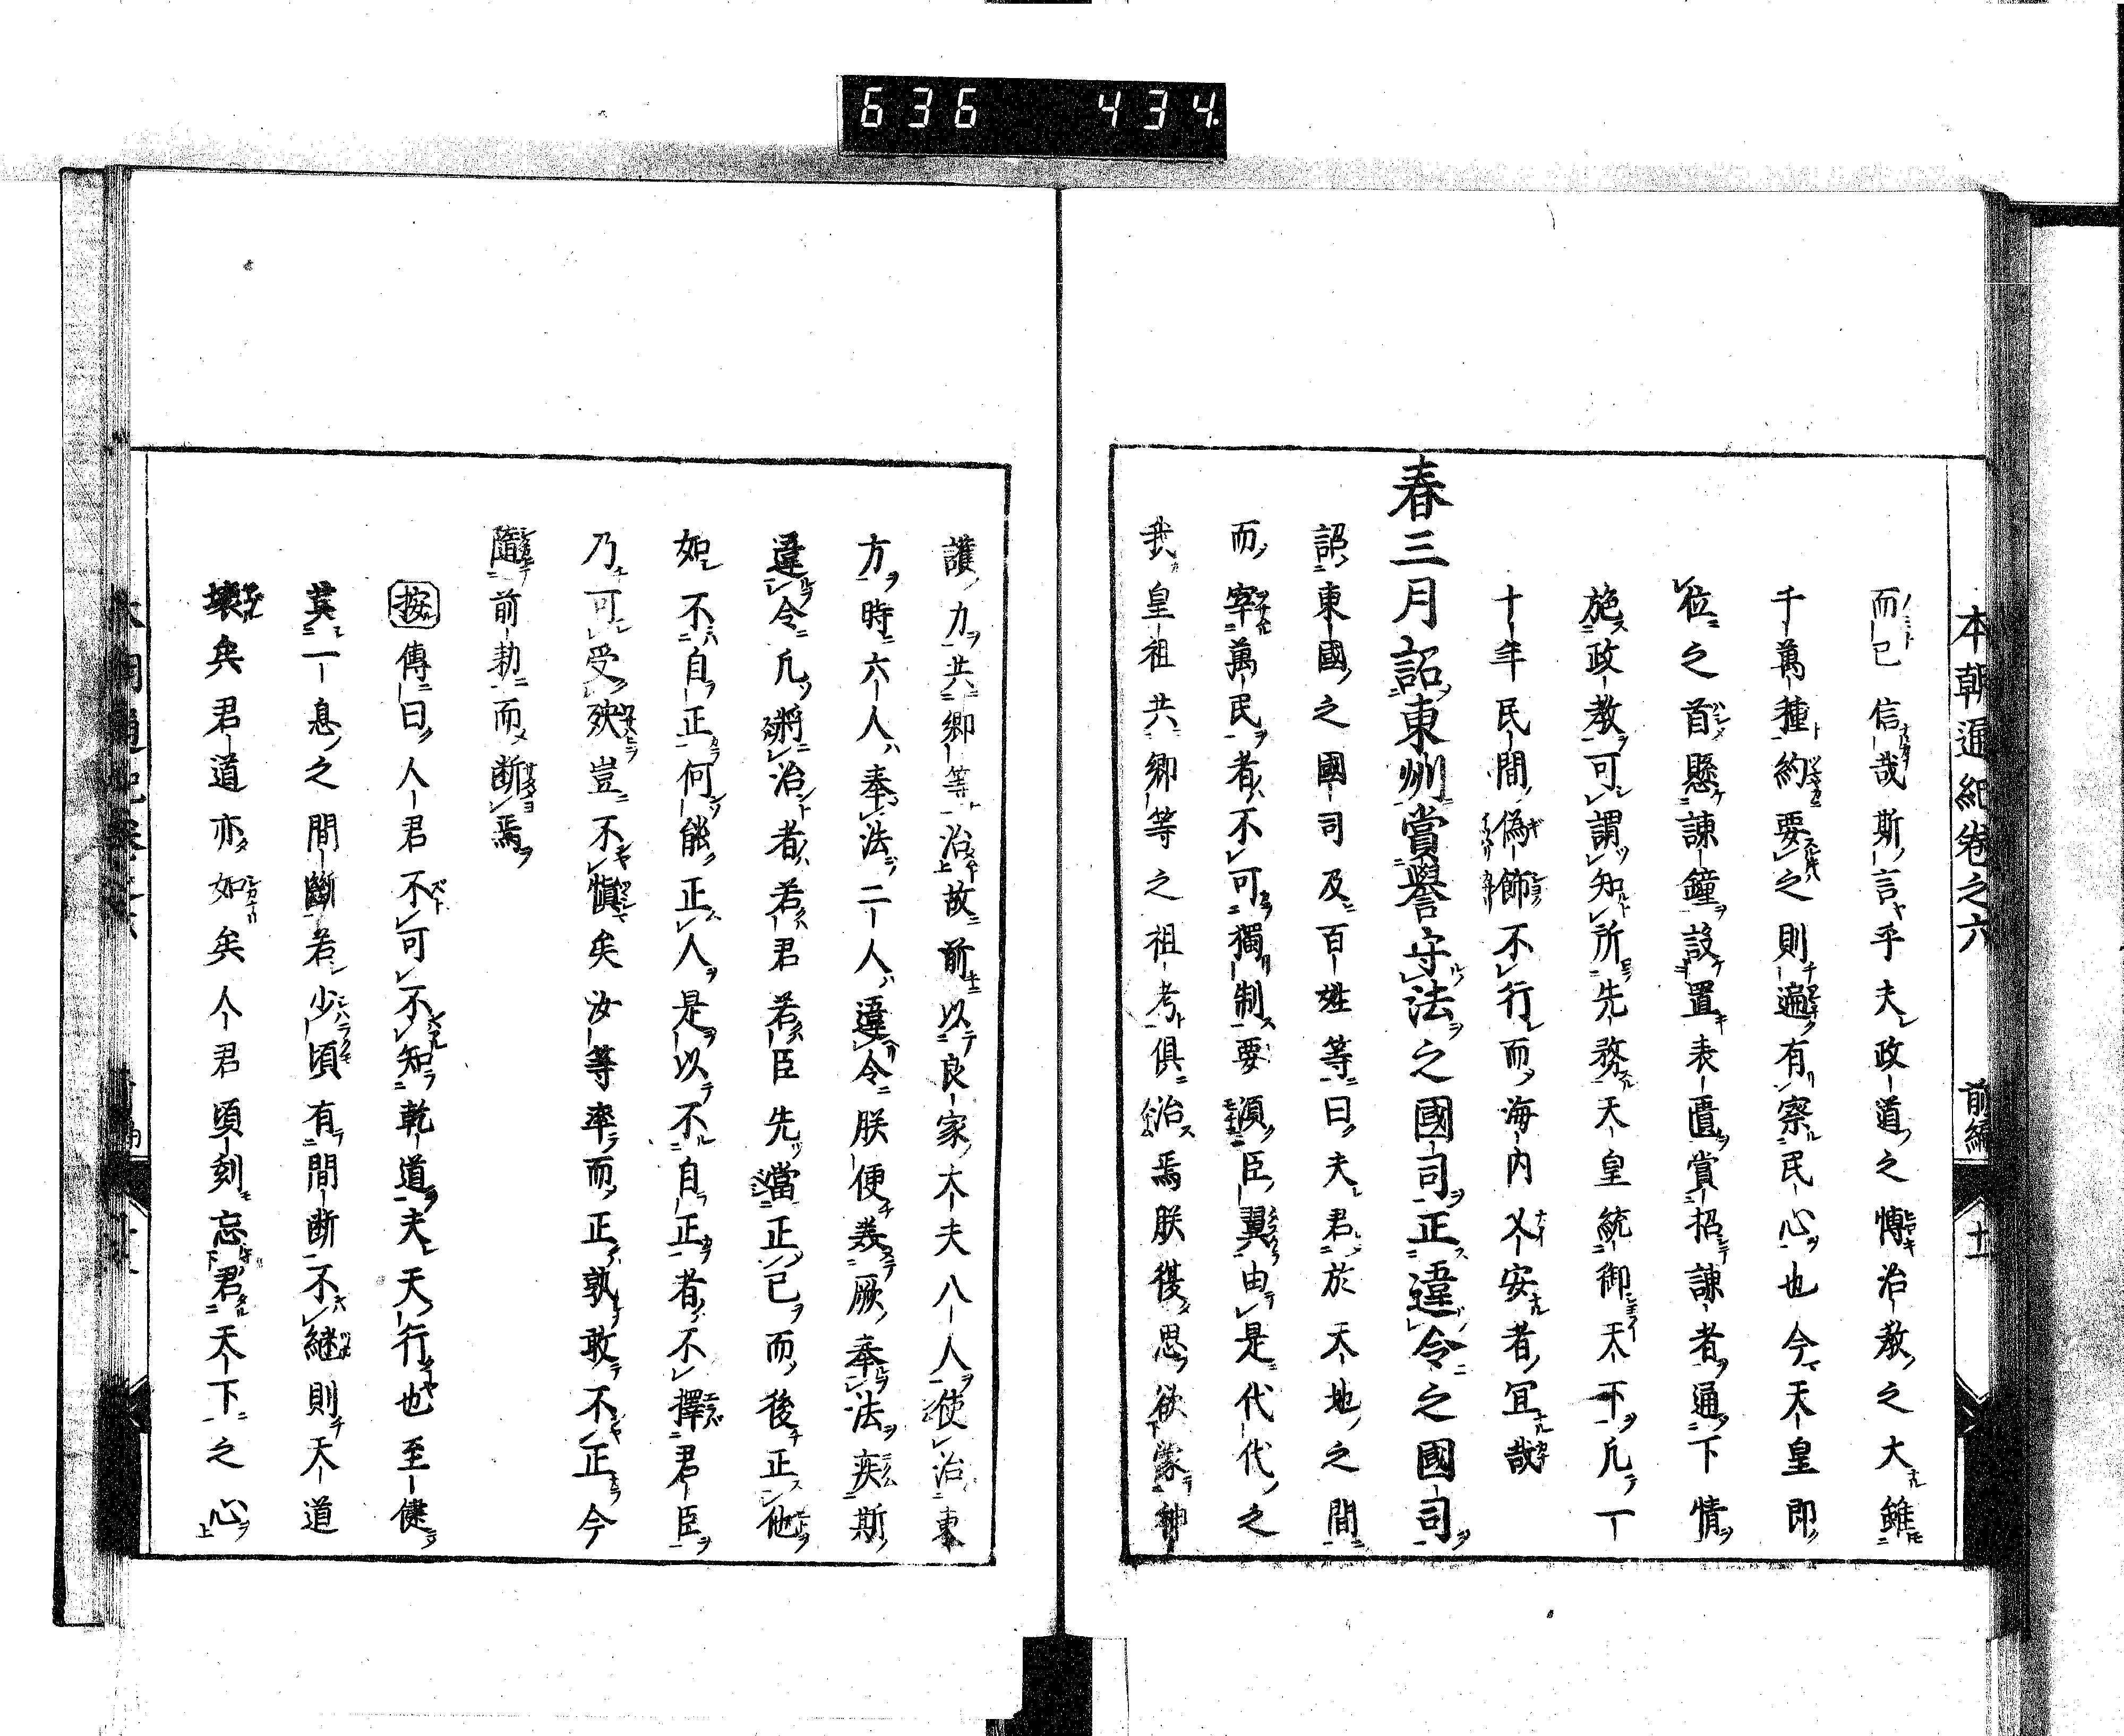 636 434
本朝通紀卷之六 前編 十一
而已信哉斯言乎夫政道之慱治教之大雖
千萬種約要之則遍有察民心也今天皇即
位之首懸諫鐘設置表匱賞招諫者通下情
施政教可謂知所先務天皇統御天下凡一
十年民間僞飾不行而海内乂安者冝哉
春三月詔東州賞譽守法之國司正違令之國司
詔東國之國司及百姓等曰夫君於天地之間
而宰萬民者不可獨制要須臣翼由是代代之
我皇祖共卿等之祖考俱治焉朕復思欲蒙神
護力共卿等治故前以良家大夫八人使治東
方時六人奉法二人違令朕便羙厥奉法疾斯
違令凡將治者若君若臣先當正已而後正他
如不自正何能正人是以不自正者不擇君臣
乃可受殃豈不慎矣汝等率而正孰敢不正今
隨前勅而断焉
按傳曰人君不可不知乾道夫天行也至健
莫一息之間斷若少頃有間断不継則天道
壞矣君道亦如矣人君頃刻忘君天下之心